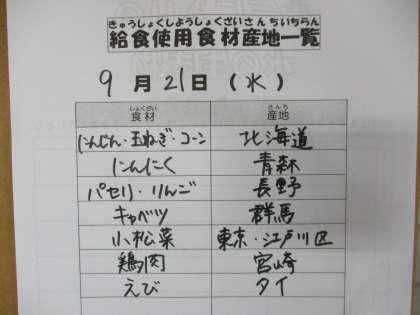 きゅうしょくしようしょくざいさんちいちらん
給食使用食材産地一覧
9月21日(水)
しょくざい さんち
食材 産地
にんじん・玉ねぎ・コーン 北海道
にんにく 青森
パセリ・りんご 長野
キャベツ 群馬
小松菜 東京・江戸川区
鶏肉 宮崎
えび タイ